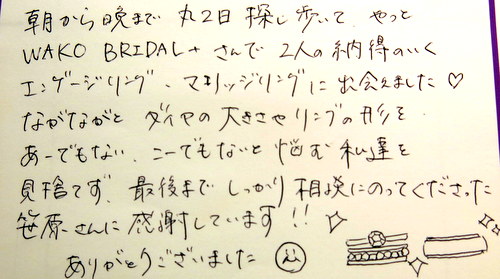 朝から晩まで 丸2日 探し歩いて、やっと
WAKO BRIDALさんで 2人の納得のいく
エンゲージリング、マリッジリングに出会えました♡
ながながと ダイヤの大きさやリングの形を
あーでもない、こーでもないと悩む私達を
見捨てず、最後まで しっかり相談にのってくださった
笹原さんに感謝しています!!
ありがとうございました